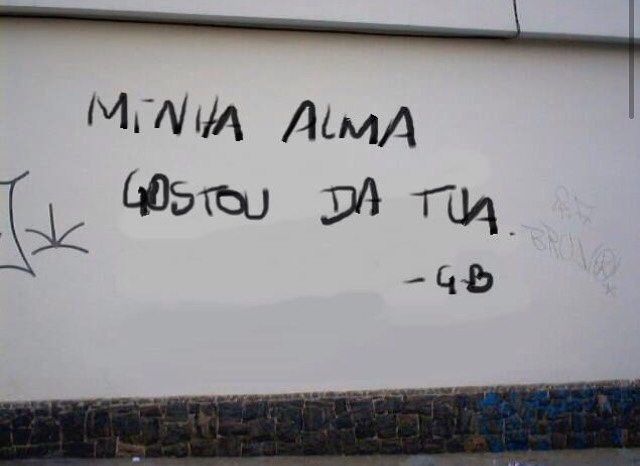 MINHA ALMA
GOSTOU DA TUA.
- GB